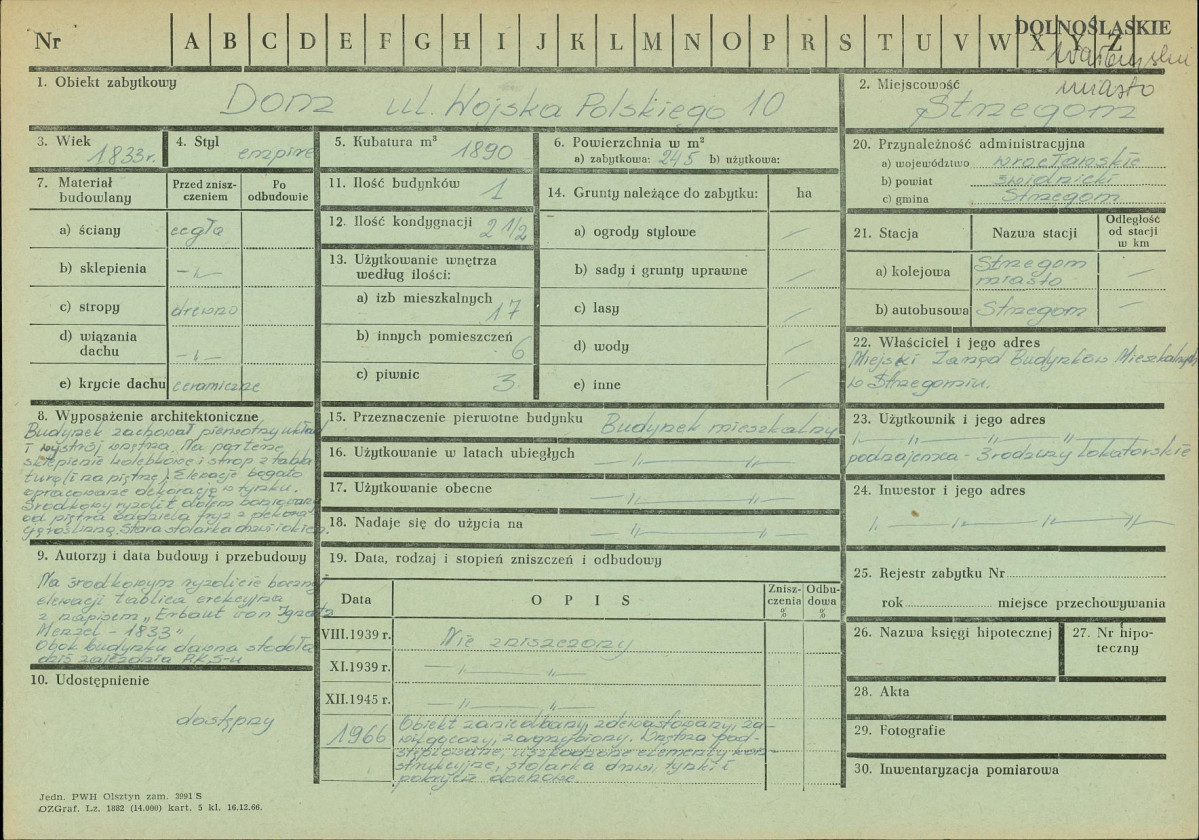 Nr A B C D E F G H I J K L M N O P R S T U V W X Y Z DOLNOŚLĄSKIE
miasto
1. Obiekt zabytkowy
Dom ul. Wojska Polskiego 10
2. Miejscowość
Strzegom
3. Wiek
1833 r.
4. Styl
empire
5. Kubatura m³
1890
6. Powierzchnia w m²
a) zabytkowa: 245 b) użytkowa:
7. Materiał budowlany
Przed zniszczeniem
Po odbudowie
a) ściany cegła
b) sklepienia -"-
c) stropy drewno
d) wiązania dachu -"-
e) krycie dachu ceramiczne
8. Wyposażenie architektoniczne
Budynek zachował pierwotny układ
i wystrój wnętrza. Na parterze
sklepienie kolebkowe i strop z fasetą
turę (i na piętrze). Elewacje bogato
opracowane dekoracją w tynku.
Środkowy ryzalit dołem boniowany
od piętra oddziela fryz z dekora-
cją roślinną. Stara stolarka drzwi i okien.
9. Autorzy i data budowy i przebudowy
Na środkowym ryzalicie bocznej
elewacji tablica erekcyjna
z napisem „Erbaut von Ignatz
Menzel - 1833"
Obok budynku dawna stodoła
dziś zajezdnia PKS-u
10. Udostępnienie
dostępny
11. Ilość budynków 1
12. Ilość kondygnacji 2 1/2
13. Użytkowanie wnętrza według ilości:
a) izb mieszkalnych 17
b) innych pomieszczeń 6
c) piwnic 3
14. Grunty należące do zabytku: ha
a) ogrody stylowe —
b) sady i grunty uprawne —
c) lasy —
d) wody —
e) inne —
15. Przeznaczenie pierwotne budynku Budynek mieszkalny
16. Użytkowanie w latach ubiegłych -"- -"-
17. Użytkowanie obecne -"- -"-
18. Nadaje się do użycia na -"- -"-
19. Data, rodzaj i stopień zniszczeń i odbudowy
Data OPIS Zniszczenia % Odbudowa %
VIII.1939 r. Nie zniszczony
XI.1939 r. -"- -"-
XII.1945 r. -"- -"-
1966 Obiekt zaniedbany, zdewastowany, za-
wilgocony, zagrzybiony. Wnętrza pod-
stemplowane, uszkodzone elementy kon-
strukcyjne, stolarka drzwi, tynki i
pokrycie dachowe.
20. Przynależność administracyjna
a) województwo wrocławskie
b) powiat świdnicki
c) gmina Strzegom
21. Stacja
Nazwa stacji
Odległość od stacji w km
a) kolejowa Strzegom miasto —
b) autobusowa Strzegom —
22. Właściciel i jego adres
Miejski Zarząd Budynków Mieszkalnych
w Strzegomiu.
23. Użytkownik i jego adres
-"- -"- -"-
podnajemca - 3 rodziny lokatorskie
24. Inwestor i jego adres
-"- -"- -"-
25. Rejestr zabytku Nr
rok miejsce przechowywania
26. Nazwa księgi hipotecznej
27. Nr hipoteczny
28. Akta
29. Fotografie
30. Inwentaryzacja pomiarowa
Jedn. PWH Olsztyn zam. 3991 S
OZGraf. Lz. 1882 (14.000) kart. 5 kl. 16.12.66.